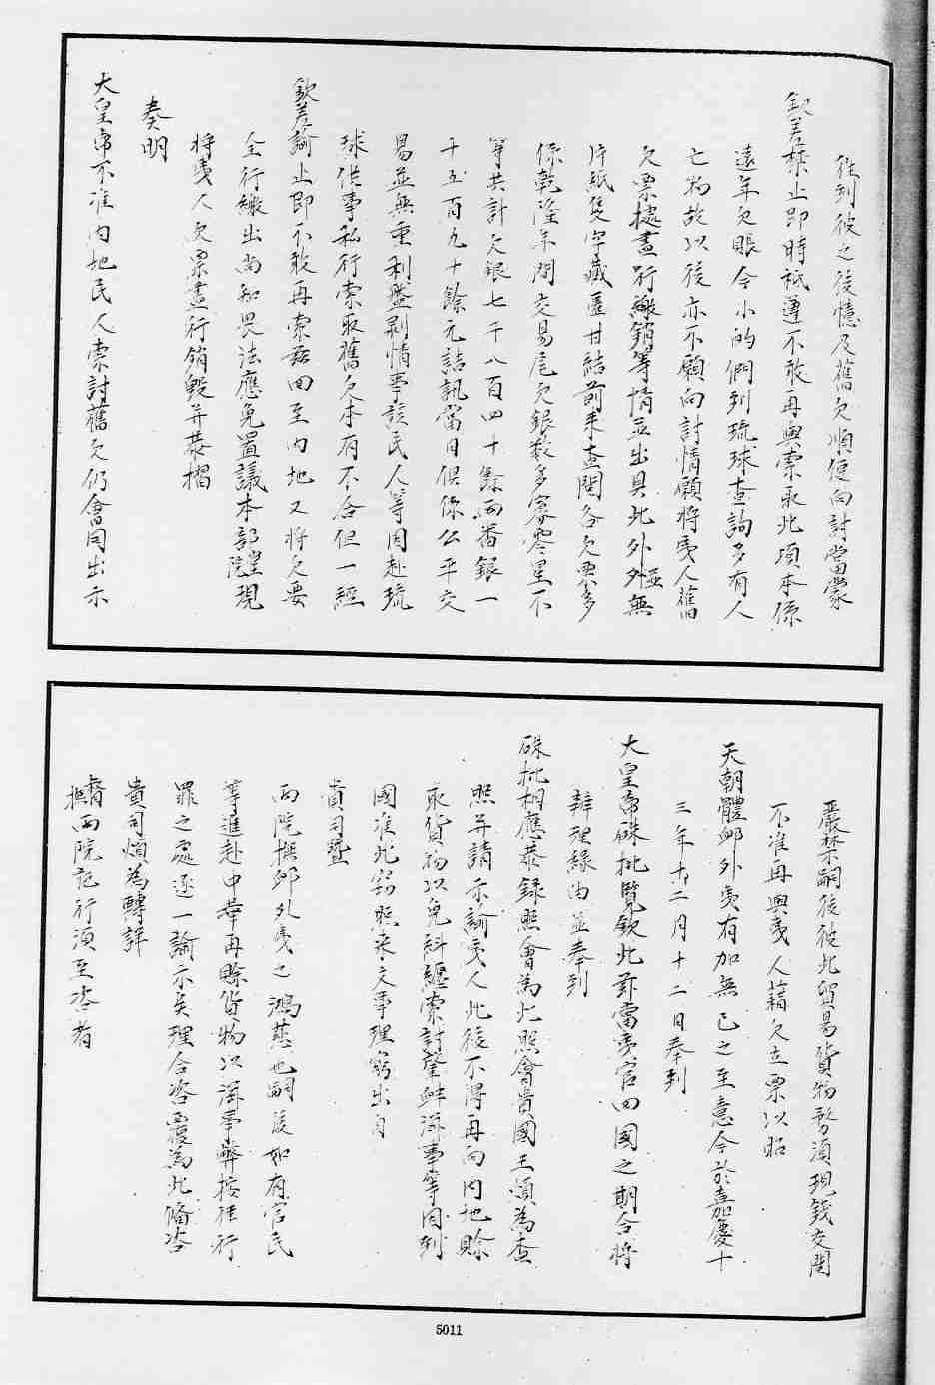 往到彼之後憶及舊欠順便向討當蒙
欽差禁止即時祗遵不敢再與索求此項本係
遠年欠賬今小的們到琉球查詢多有人
亡物故以後亦不願向討情願將夷人舊
欠票據盡行繳銷等情並出具此外並無
片紙隻字藏匿甘結前來查閱各欠票多
係乾隆年間交易尾欠銀數多寡零星不
等共計欠銀七千八百四十餘兩番銀一
千五百九十餘元詰訊當日俱係公平交
易並無重利盤剝情事該民人等因赴琉
球供事私行索取舊欠本有不合但一經
欽差諭止即不敢再索茲回至內地又將欠票
全行繳出尚知畏法應免置議本部院現
將夷人欠票盡行銷毀并恭摺
奏明
大皇帝不准內地民人索討舊欠仍會同出示
嚴禁嗣後彼此貿易貨物務須現錢交關
不准再與夷人藉欠立票以昭
天朝體卹外夷有加無已之至意今於嘉慶十
三年十二月十二日奉到
大皇帝硃批覽欽此茲當夷官回國之期合將
辦理緣由並奉到
硃批相應恭錄照會為此照會貴國王煩為查
照并請示諭夷人此後不得再向內地賒
取貨物以免糾纏索討望衅滋事等因到
國准此竊照來文事理竊出自
貴司暨
兩院撫卹外夷之鴻慈也嗣後如有官民
等進赴中華再賒貨物以滋事弊按徃行
罪之處逐一諭示矣理合咨覆為此備咨
貴司煩為轉詳
督撫兩院記行須至咨者
5011